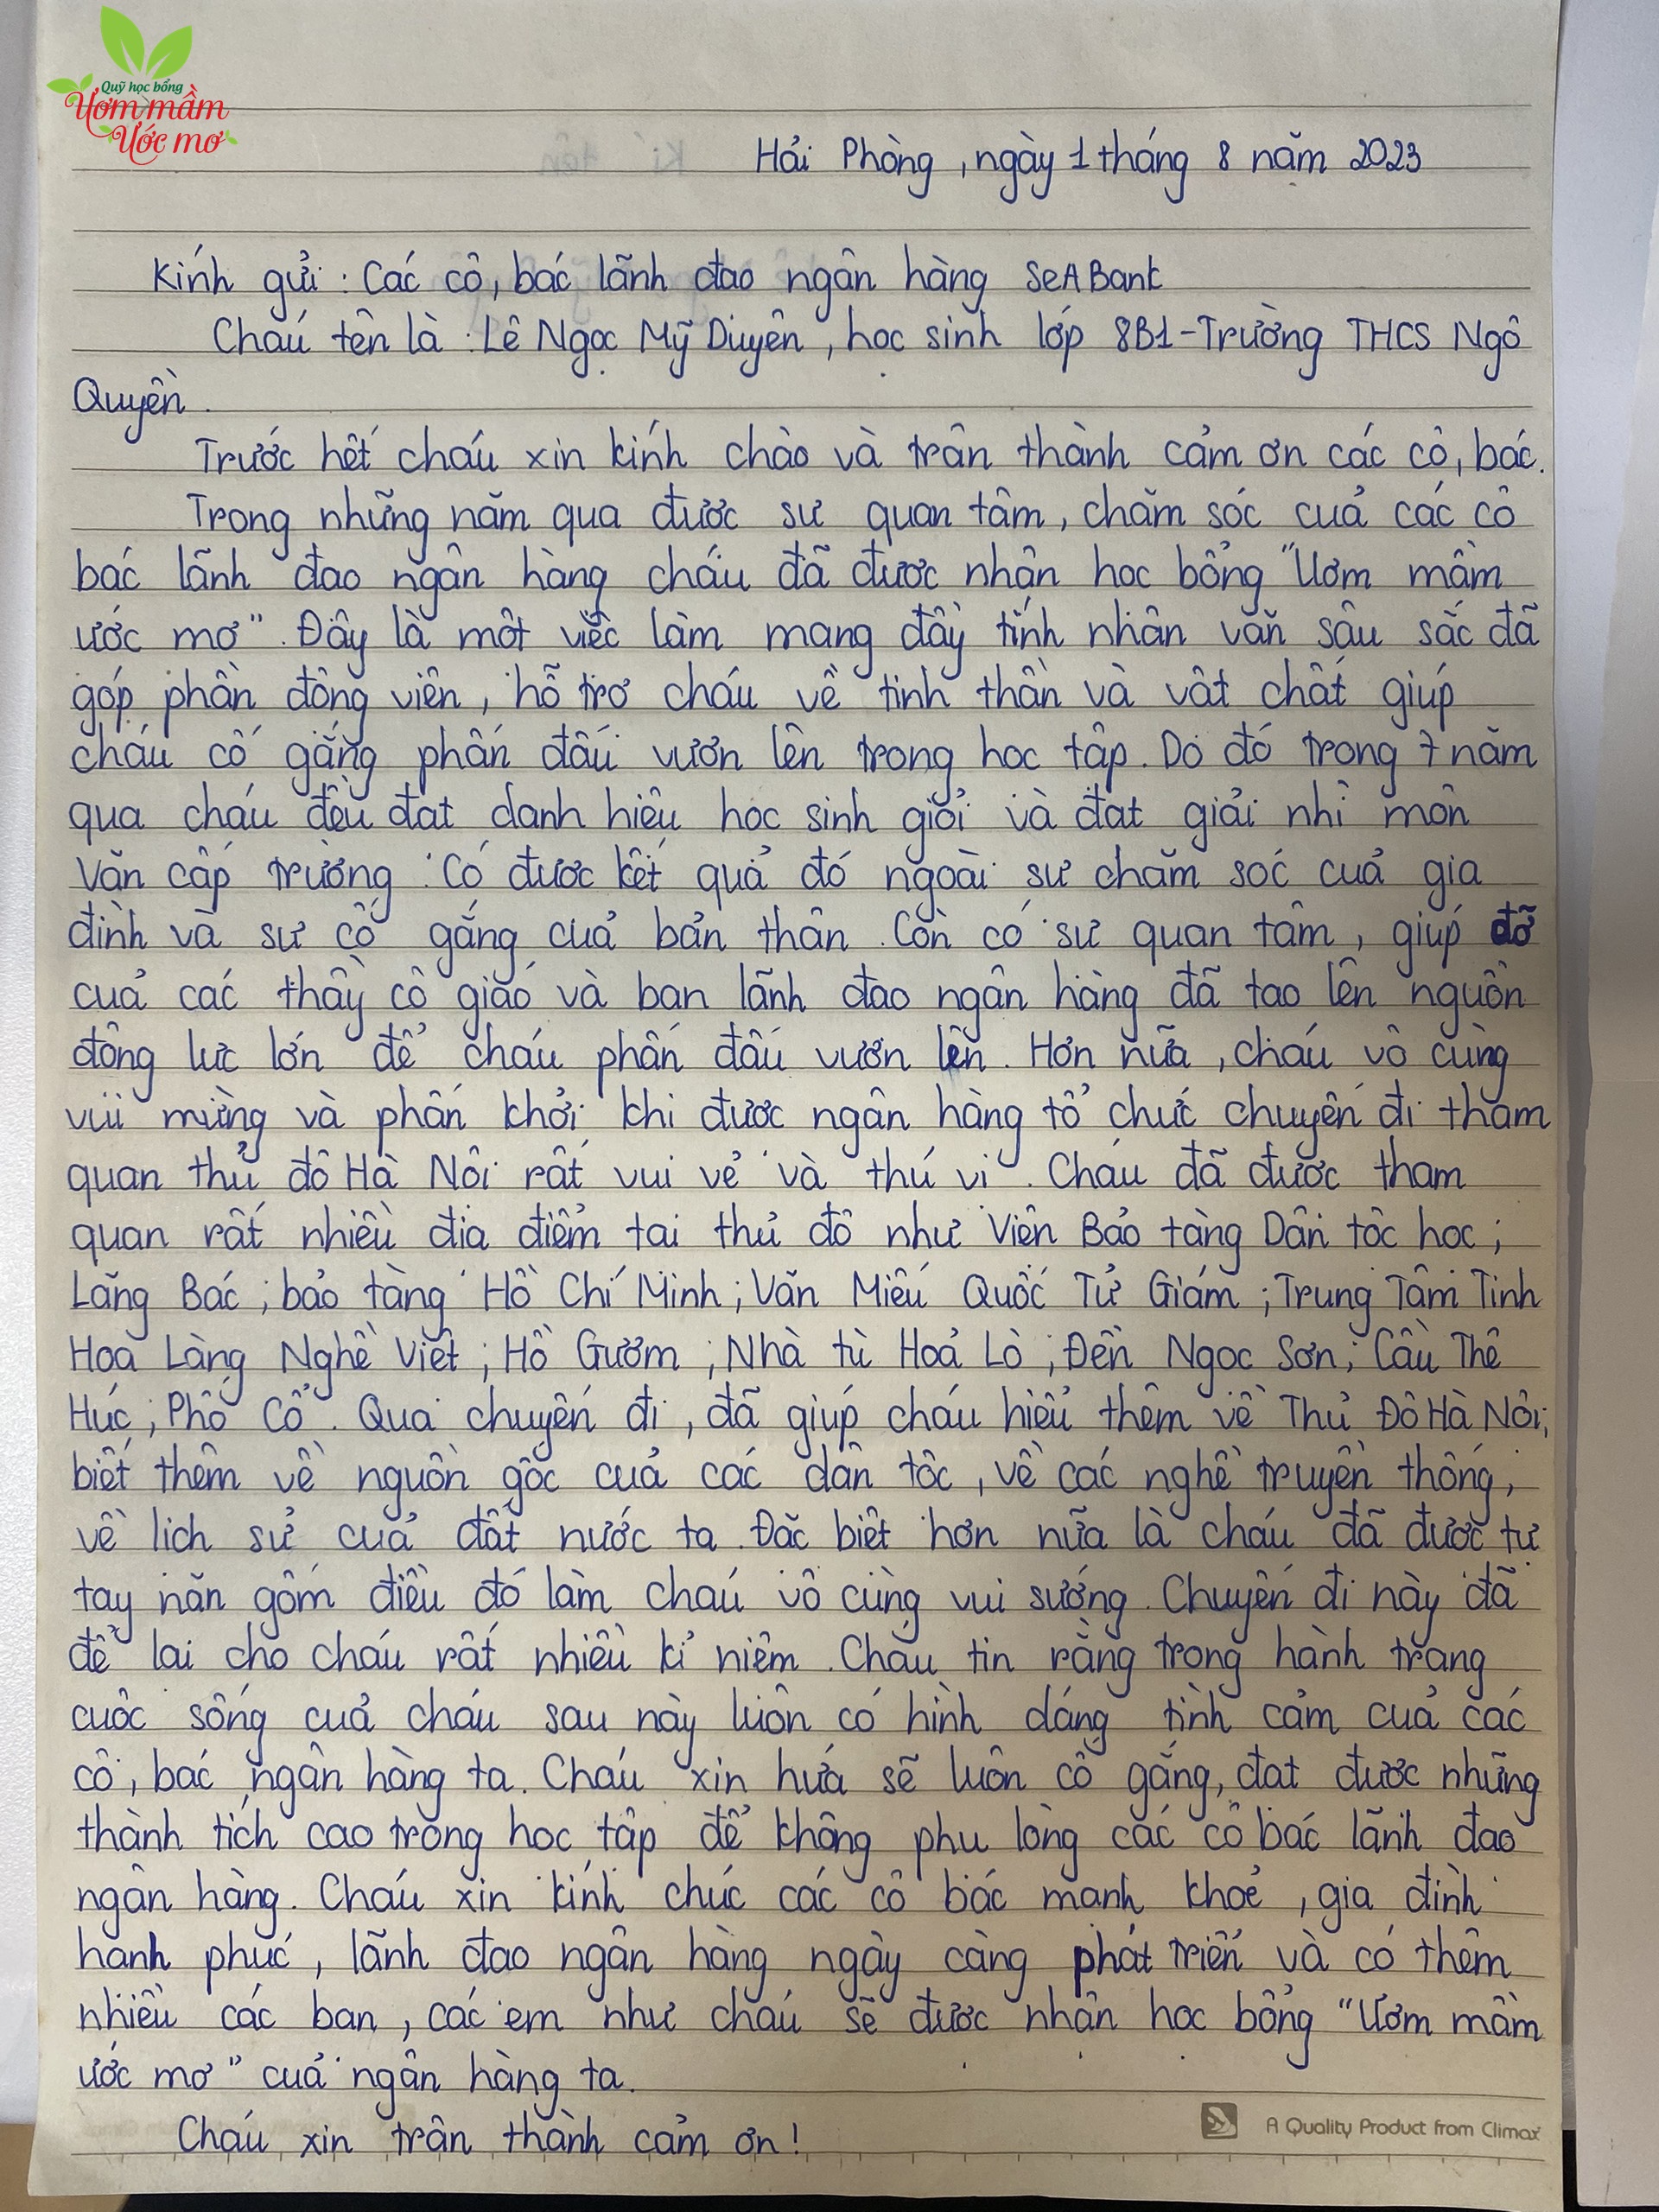 Quỹ học bổng
Ươm mầm
Ước mơ
Hải Phòng, ngày 1 tháng 8 năm 2023
Kính gửi : Các cô, bác lãnh đạo ngân hàng SeABank
Cháu tên là : Lê Ngọc Mỹ Duyên, học sinh lớp 8B1 - Trường THCS Ngô
Quyền.
Trước hết cháu xin kính chào và trân thành cảm ơn các cô, bác.
Trong những năm qua được sự quan tâm, chăm sóc của các cô
bác lãnh đạo ngân hàng cháu đã được nhận học bổng "Ươm mầm
ước mơ". Đây là một việc làm mang đầy tính nhân văn sâu sắc đã
góp phần động viên, hỗ trợ cháu về tinh thần và vật chất giúp
cháu cố gắng phấn đấu vươn lên trong học tập. Do đó trong 7 năm
qua cháu đều đạt danh hiệu học sinh giỏi và đạt giải nhì môn
Văn cấp trường. Có được kết quả đó ngoài sự chăm sóc của gia
đình và sự cố gắng của bản thân. Còn có sự quan tâm, giúp đỡ
của các thầy cô giáo và ban lãnh đạo ngân hàng đã tạo lên nguồn
động lực lớn để cháu phấn đấu vươn lên. Hơn nữa, cháu vô cùng
vui mừng và phấn khởi khi được ngân hàng tổ chức chuyến đi tham
quan thủ đô Hà Nội rất vui vẻ và thú vị. Cháu đã được tham
quan rất nhiều địa điểm tại thủ đô như Viện Bảo tàng Dân tộc học ;
Lăng Bác ; bảo tàng Hồ Chí Minh ; Văn Miếu Quốc Tử Giám ; Trung Tâm Tinh
Hoa Làng Nghề Việt ; Hồ Gươm ; Nhà tù Hoả Lò ; Đền Ngọc Sơn ; Cầu Thê
Húc ; Phố Cổ. Qua chuyến đi, đã giúp cháu hiểu thêm về Thủ Đô Hà Nội,
biết thêm về nguồn gốc của các dân tộc, về các nghề truyền thống,
về lịch sử của đất nước ta. Đặc biệt hơn nữa là cháu đã được tự
tay nặn gốm điều đó làm cháu vô cùng vui sướng. Chuyến đi này đã
để lại cho cháu rất nhiều kỉ niệm. Cháu tin rằng trong hành trang
cuộc sống của cháu sau này luôn có hình dáng tình cảm của các
cô, bác ngân hàng ta. Cháu xin hứa sẽ luôn cố gắng, đạt được những
thành tích cao trong học tập để không phụ lòng các cô bác lãnh đạo
ngân hàng. Cháu xin kính chúc các cô bác mạnh khoẻ, gia đình
hạnh phúc, lãnh đạo ngân hàng ngày càng phát triển và có thêm
nhiều các bạn, các em như cháu sẽ được nhận học bổng "Ươm mầm
ước mơ" của ngân hàng ta.
Cháu xin trân thành cảm ơn !
A Quality Product from Climax